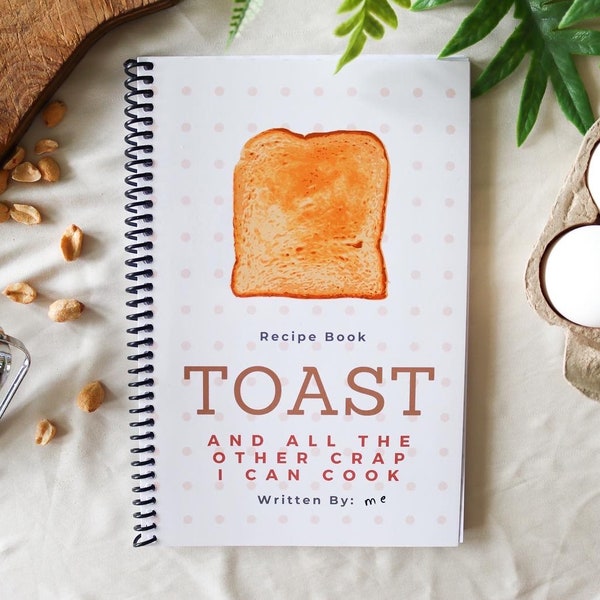 Recipe Book
TOAST
AND ALL THE
OTHER CRAP
I CAN COOK
Written By: me